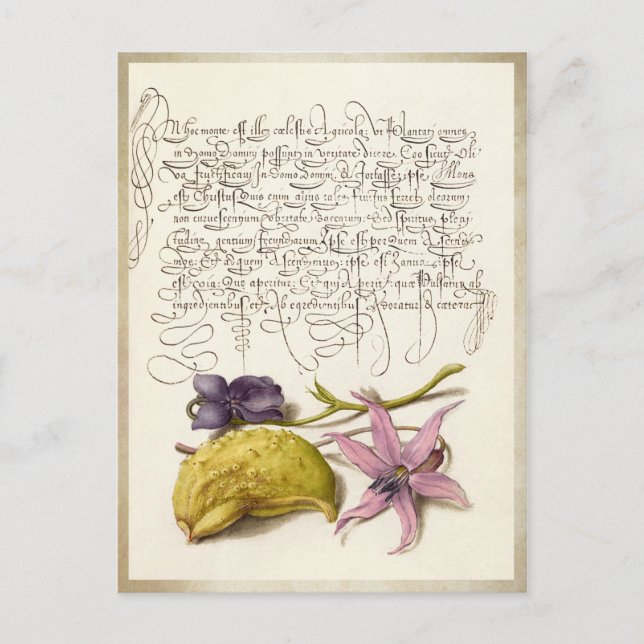 In hoc monte est ille cœlestis Agricola: Ut Plantati omnes
in Domo Domini possunt in veritate dicere. Ego sicut Oli
va fructificavi In Domo Domini, & fortasse ipse Mons
est Christus Quis enim alius tales fructus ferret olearum
non curvescentium ubertate baccarum: Sed spiritus pleni
tudine gentium fecundarum Ipse est per quem Ascendi
mus: Et ad quem Ascendimus: ipse est Janua: ipse
est via: Que aperitur: Et qui Aperit: quæ Pulsatur ab
ingredientibus, et Ab egredientibus Adoratur & cætera